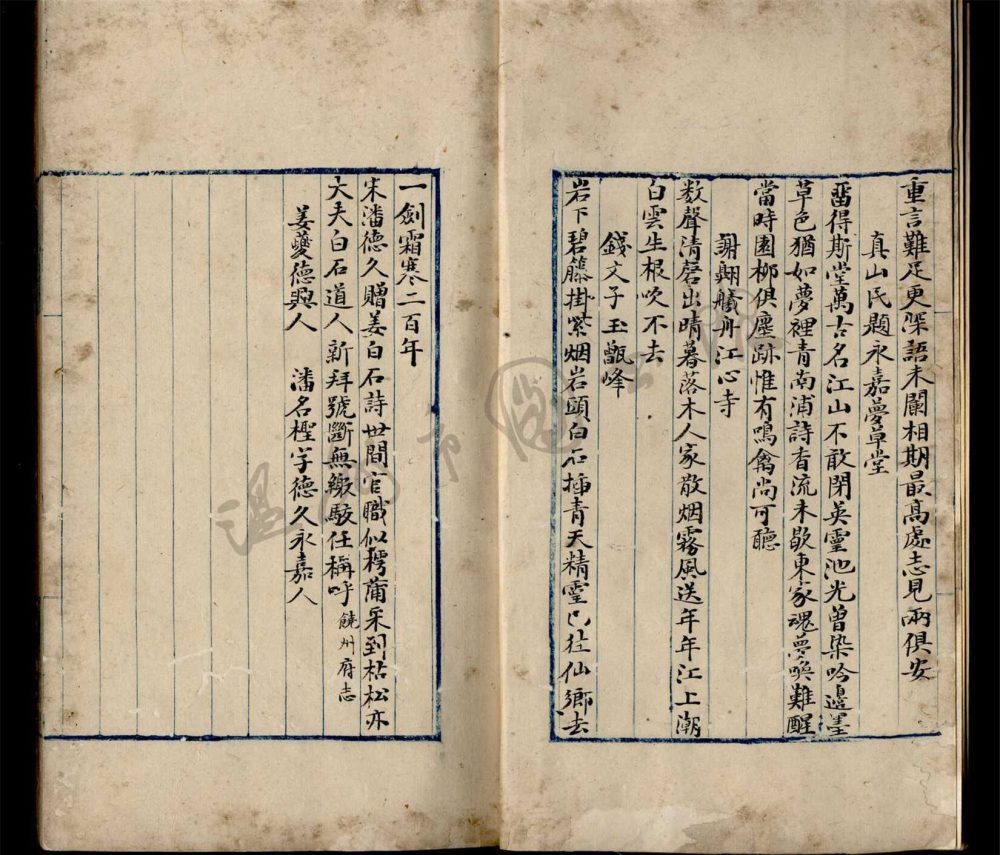 重言難足更深語未闌相期最高處志見兩俱安
真山民題永嘉夢草堂
留得斯堂萬古名江山不敢閉英靈池光曾染吟邊墨
草色猶如夢裡青南浦詩香流未歇東家魂夢喚難醒
當時園柳俱塵跡惟有鳴禽尚可聽
謝翺艤舟江心寺
数聲清磬出晴暮落木人家散烟霧風送年年江上潮
白雲生根吹不去
錢文子玉甑峰
岩下碧籐掛紫烟岩頭白石插青天精靈已往仙鄉去
一劍霜寒二百年
宋潘德久贈姜白石詩世間官職似樗蒲采到枯松亦
大夫白石道人新拜號斷無繳駁任稱呼饒州府志
姜夔德興人 潘名檉字德久永嘉人
温州市圖